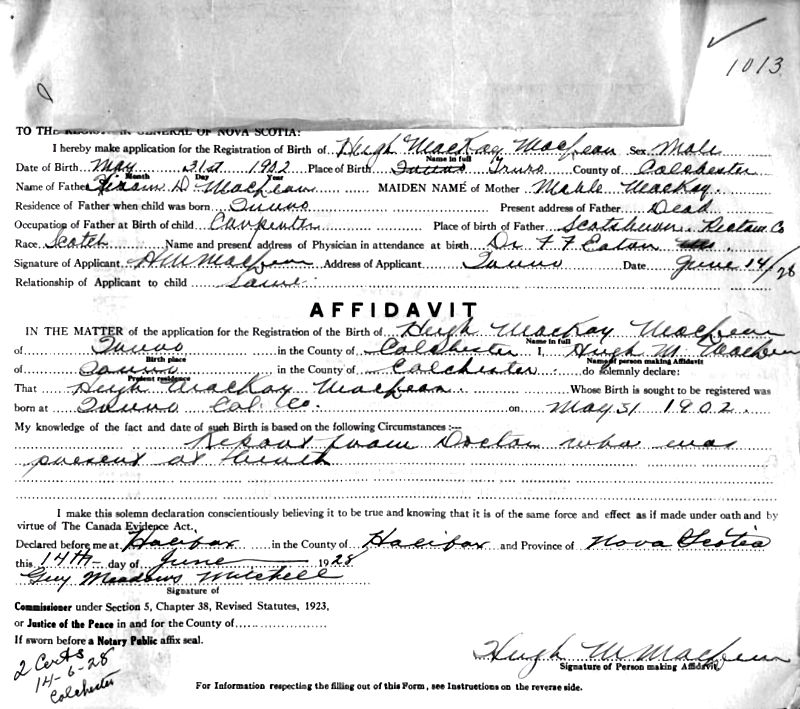 1013
TO THE REGISTRAR GENERAL OF NOVA SCOTIA:
I hereby make application for the Registration of Birth of Hugh MacKay MacLean Sex Male
Name in full
Date of Birth May 31st 1902 Place of Birth Truro County of Colchester
Month Day Year
Name of Father Hiram D. MacLean MAIDEN NAME of Mother Mable MacKay.
Residence of Father when child was born Truro Present address of Father Dead
Occupation of Father at Birth of child Carpenter Place of birth of Father Scotsburn Pictou Co
Race. Scotch Name and present address of Physician in attendance at birth Dr F F Eaton
Signature of Applicant H M MacLean Address of Applicant Truro Date June 14/28
Relationship of Applicant to child Same
AFFIDAVIT
IN THE MATTER of the application for the Registration of the Birth of Hugh MacKay MacLean
Name in full
of Truro in the County of Colchester I, Hugh M. MacLean
Birth place Name of person making Affidavit
of Truro in the County of Colchester do solemnly declare:
Present residence
That Hugh MacKay MacLean Whose Birth is sought to be registered was
born at Truro Col. Co. on May 31 1902.
My knowledge of the fact and date of such Birth is based on the following Circumstances :—
Report from Doctor who was
present at birth
I make this solemn declaration conscientiously believing it to be true and knowing that it is of the same force and effect as if made under oath and by
virtue of The Canada Evidence Act.
Declared before me at Halifax in the County of Halifax and Province of Nova Scotia
this 14th day of June 1928
Guy Meadows Mitchell
Signature of
Commissioner under Section 5, Chapter 38, Revised Statutes, 1923,
or Justice of the Peace in and for the County of
If sworn before a Notary Public affix seal.
2 Certs
14-6-28
Colchester
Hugh M MacLean
Signature of Person making Affidavit
For Information respecting the filling out of this Form, see Instructions on the reverse side.